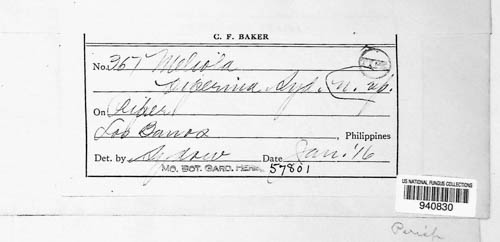 C. F. BAKER
No. 357 Meliola
Syd. n. sp.
On Piper
Los Banos, Philippines
Det. by Sydow Date Jan. '16
MO. BOT. GARD. HERB. 57801
US NATIONAL FUNGUS COLLECTIONS
940830